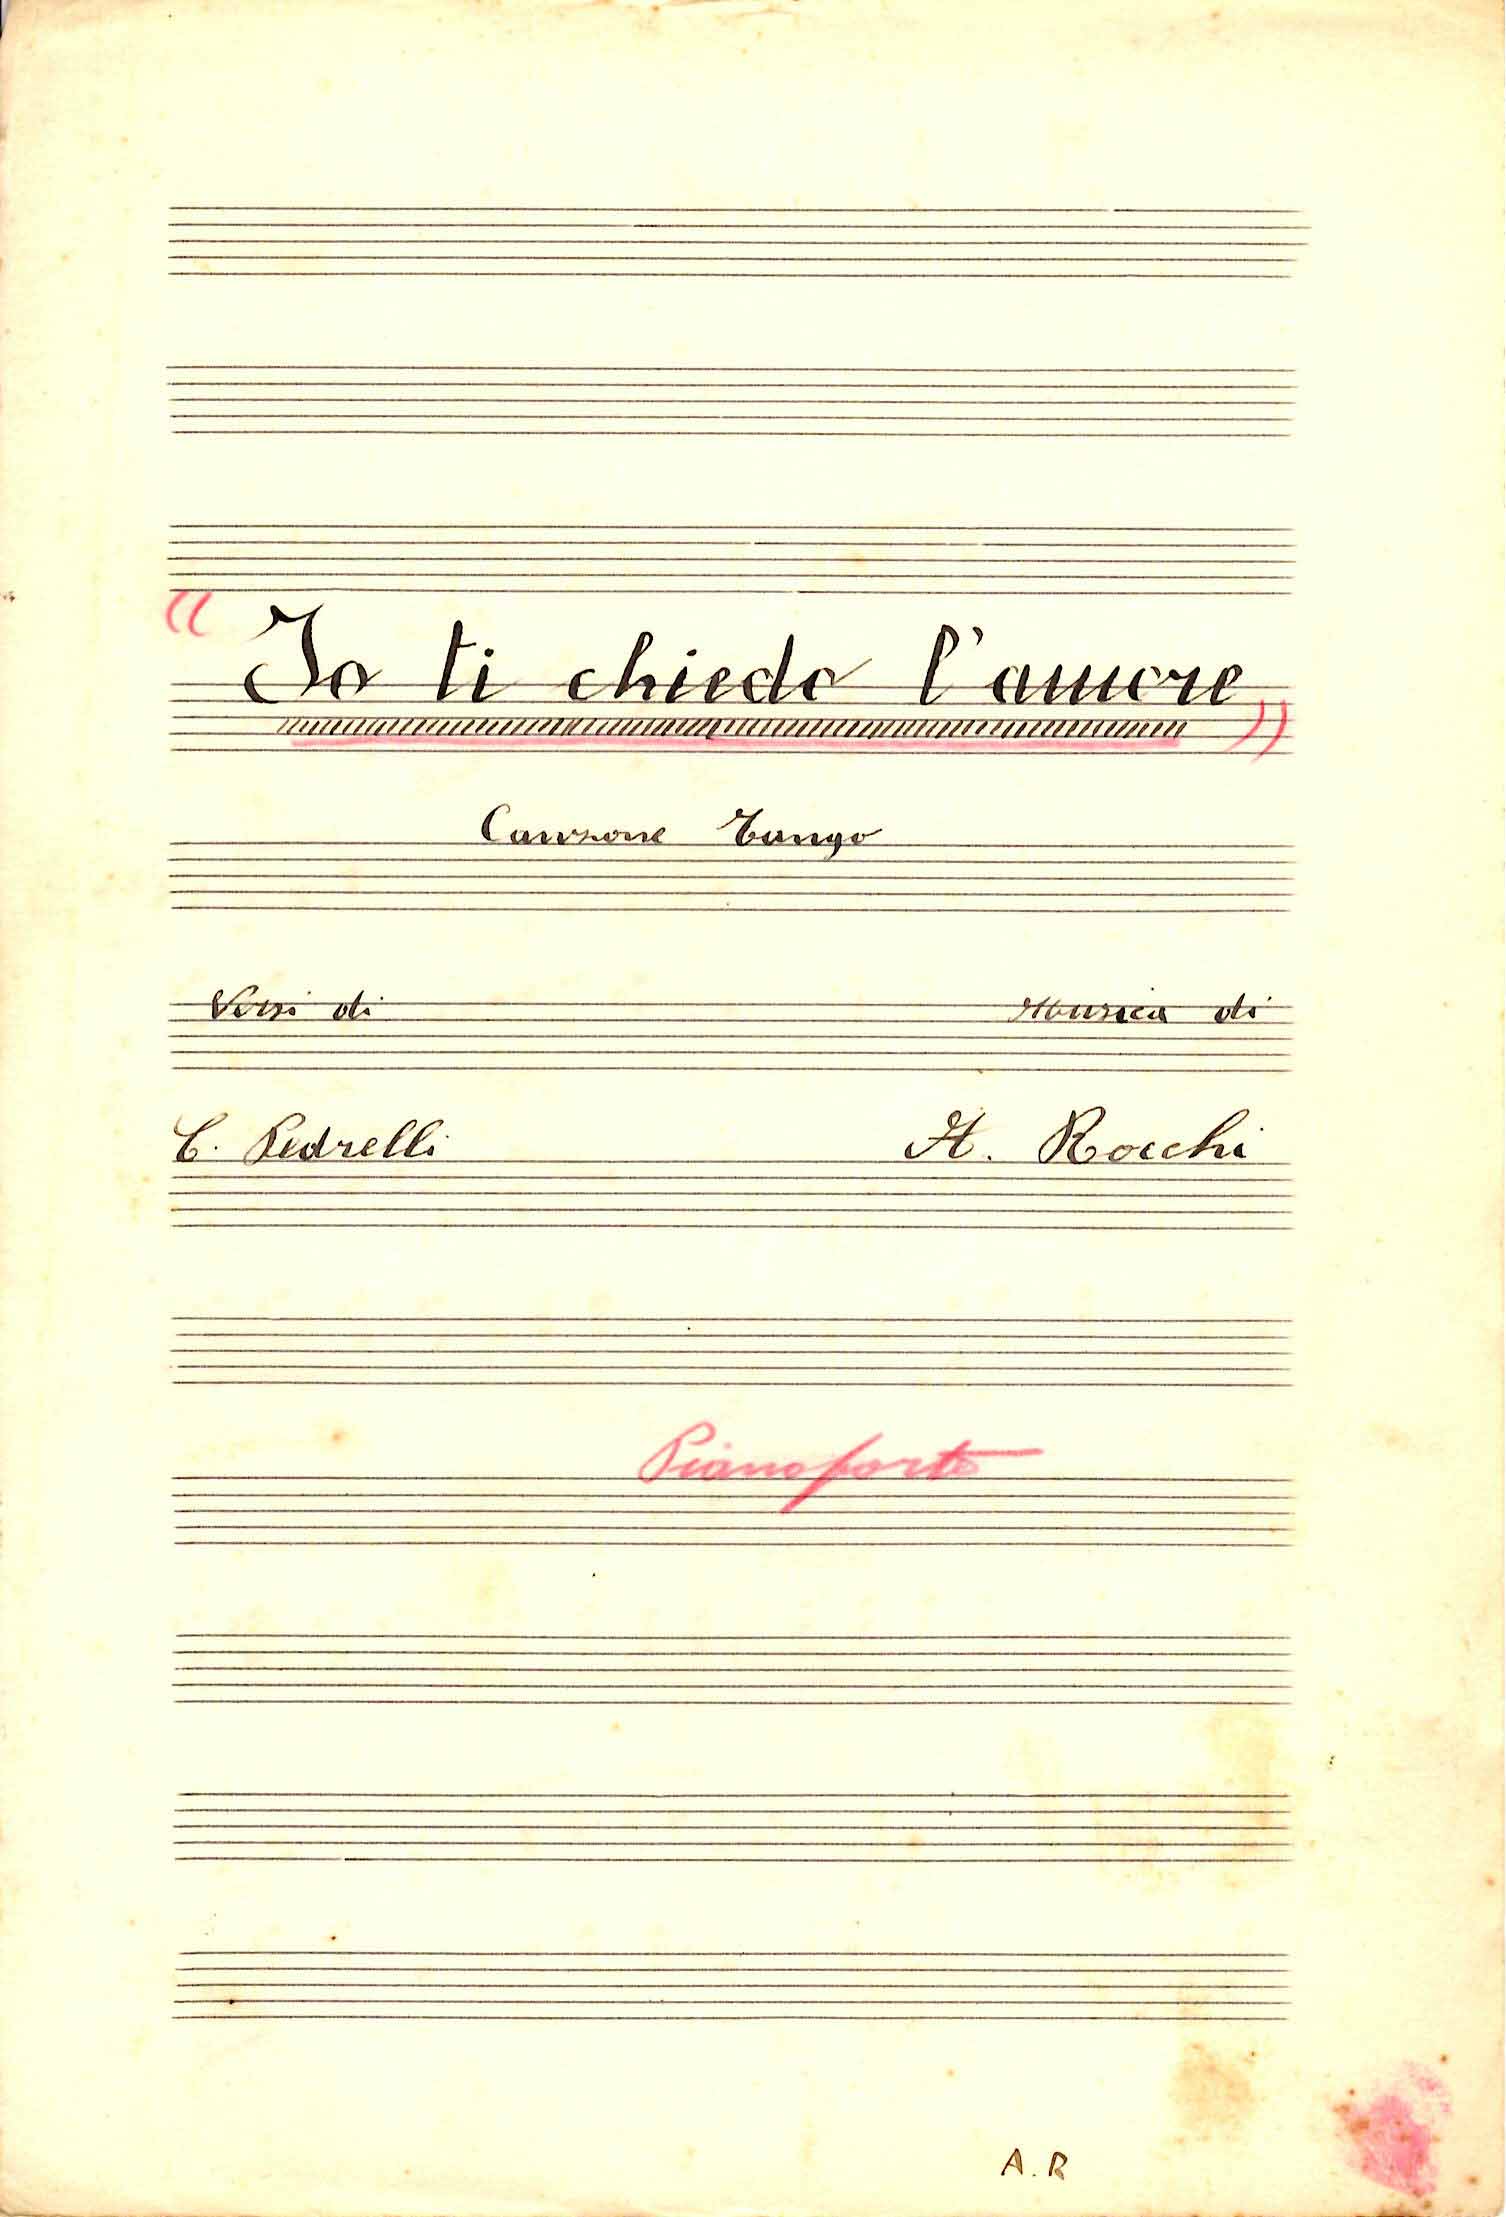 “Io ti chiedo l'amore”
Canzone Tango
Versi di Musica di
C. Pedrelli A. Rocchi
Pianoforte
A.R